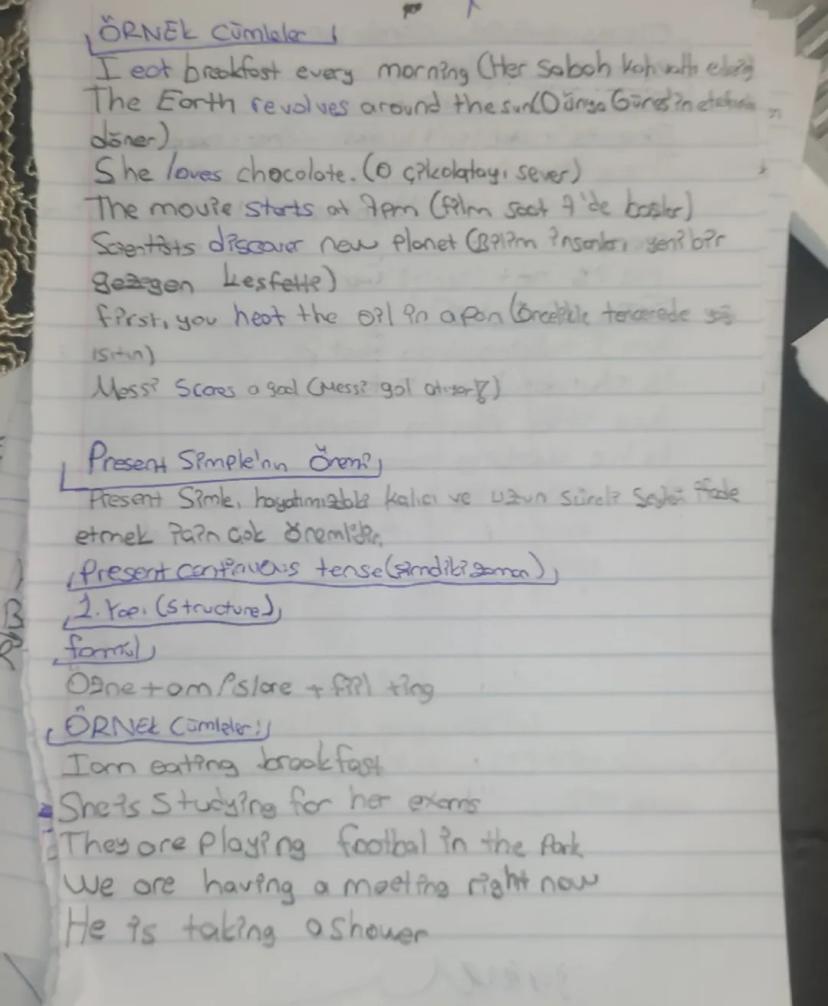 ÖRNEK Cümleler
I eat breakfast every morning (Her sabah kahvaltı
The Earth revolves around the sun (Dünya Güneş'in etrafında
döner)
She loves chocolate. (O çikolatayı sever)
The movie starts at 7pm (film saat 7'de başlar)
Scientists discover new planet (Bilim insanları yeni bir
gezegen keşfetti)
first, you heat the oil in a pan (öncelikle tencerede
ısıtın)
Messi Scores a goal (Messi gol atıyor)
Present Simple'nın Önemi
Present Simle, hayatımızdaki kalıcı ve uzun süreli ifade
etmek için çok önemlidir.
Present continuous tense (şimdiki zaman)
1. Yapı (structure)
formül
Özne + am/is/are + fiil + ing
ÖRNEK Cümleler:
I am eating breakfast
She is Studying for her exams
They are Playing footbal in the Park
We are having a meeting right now
He is taking a shower